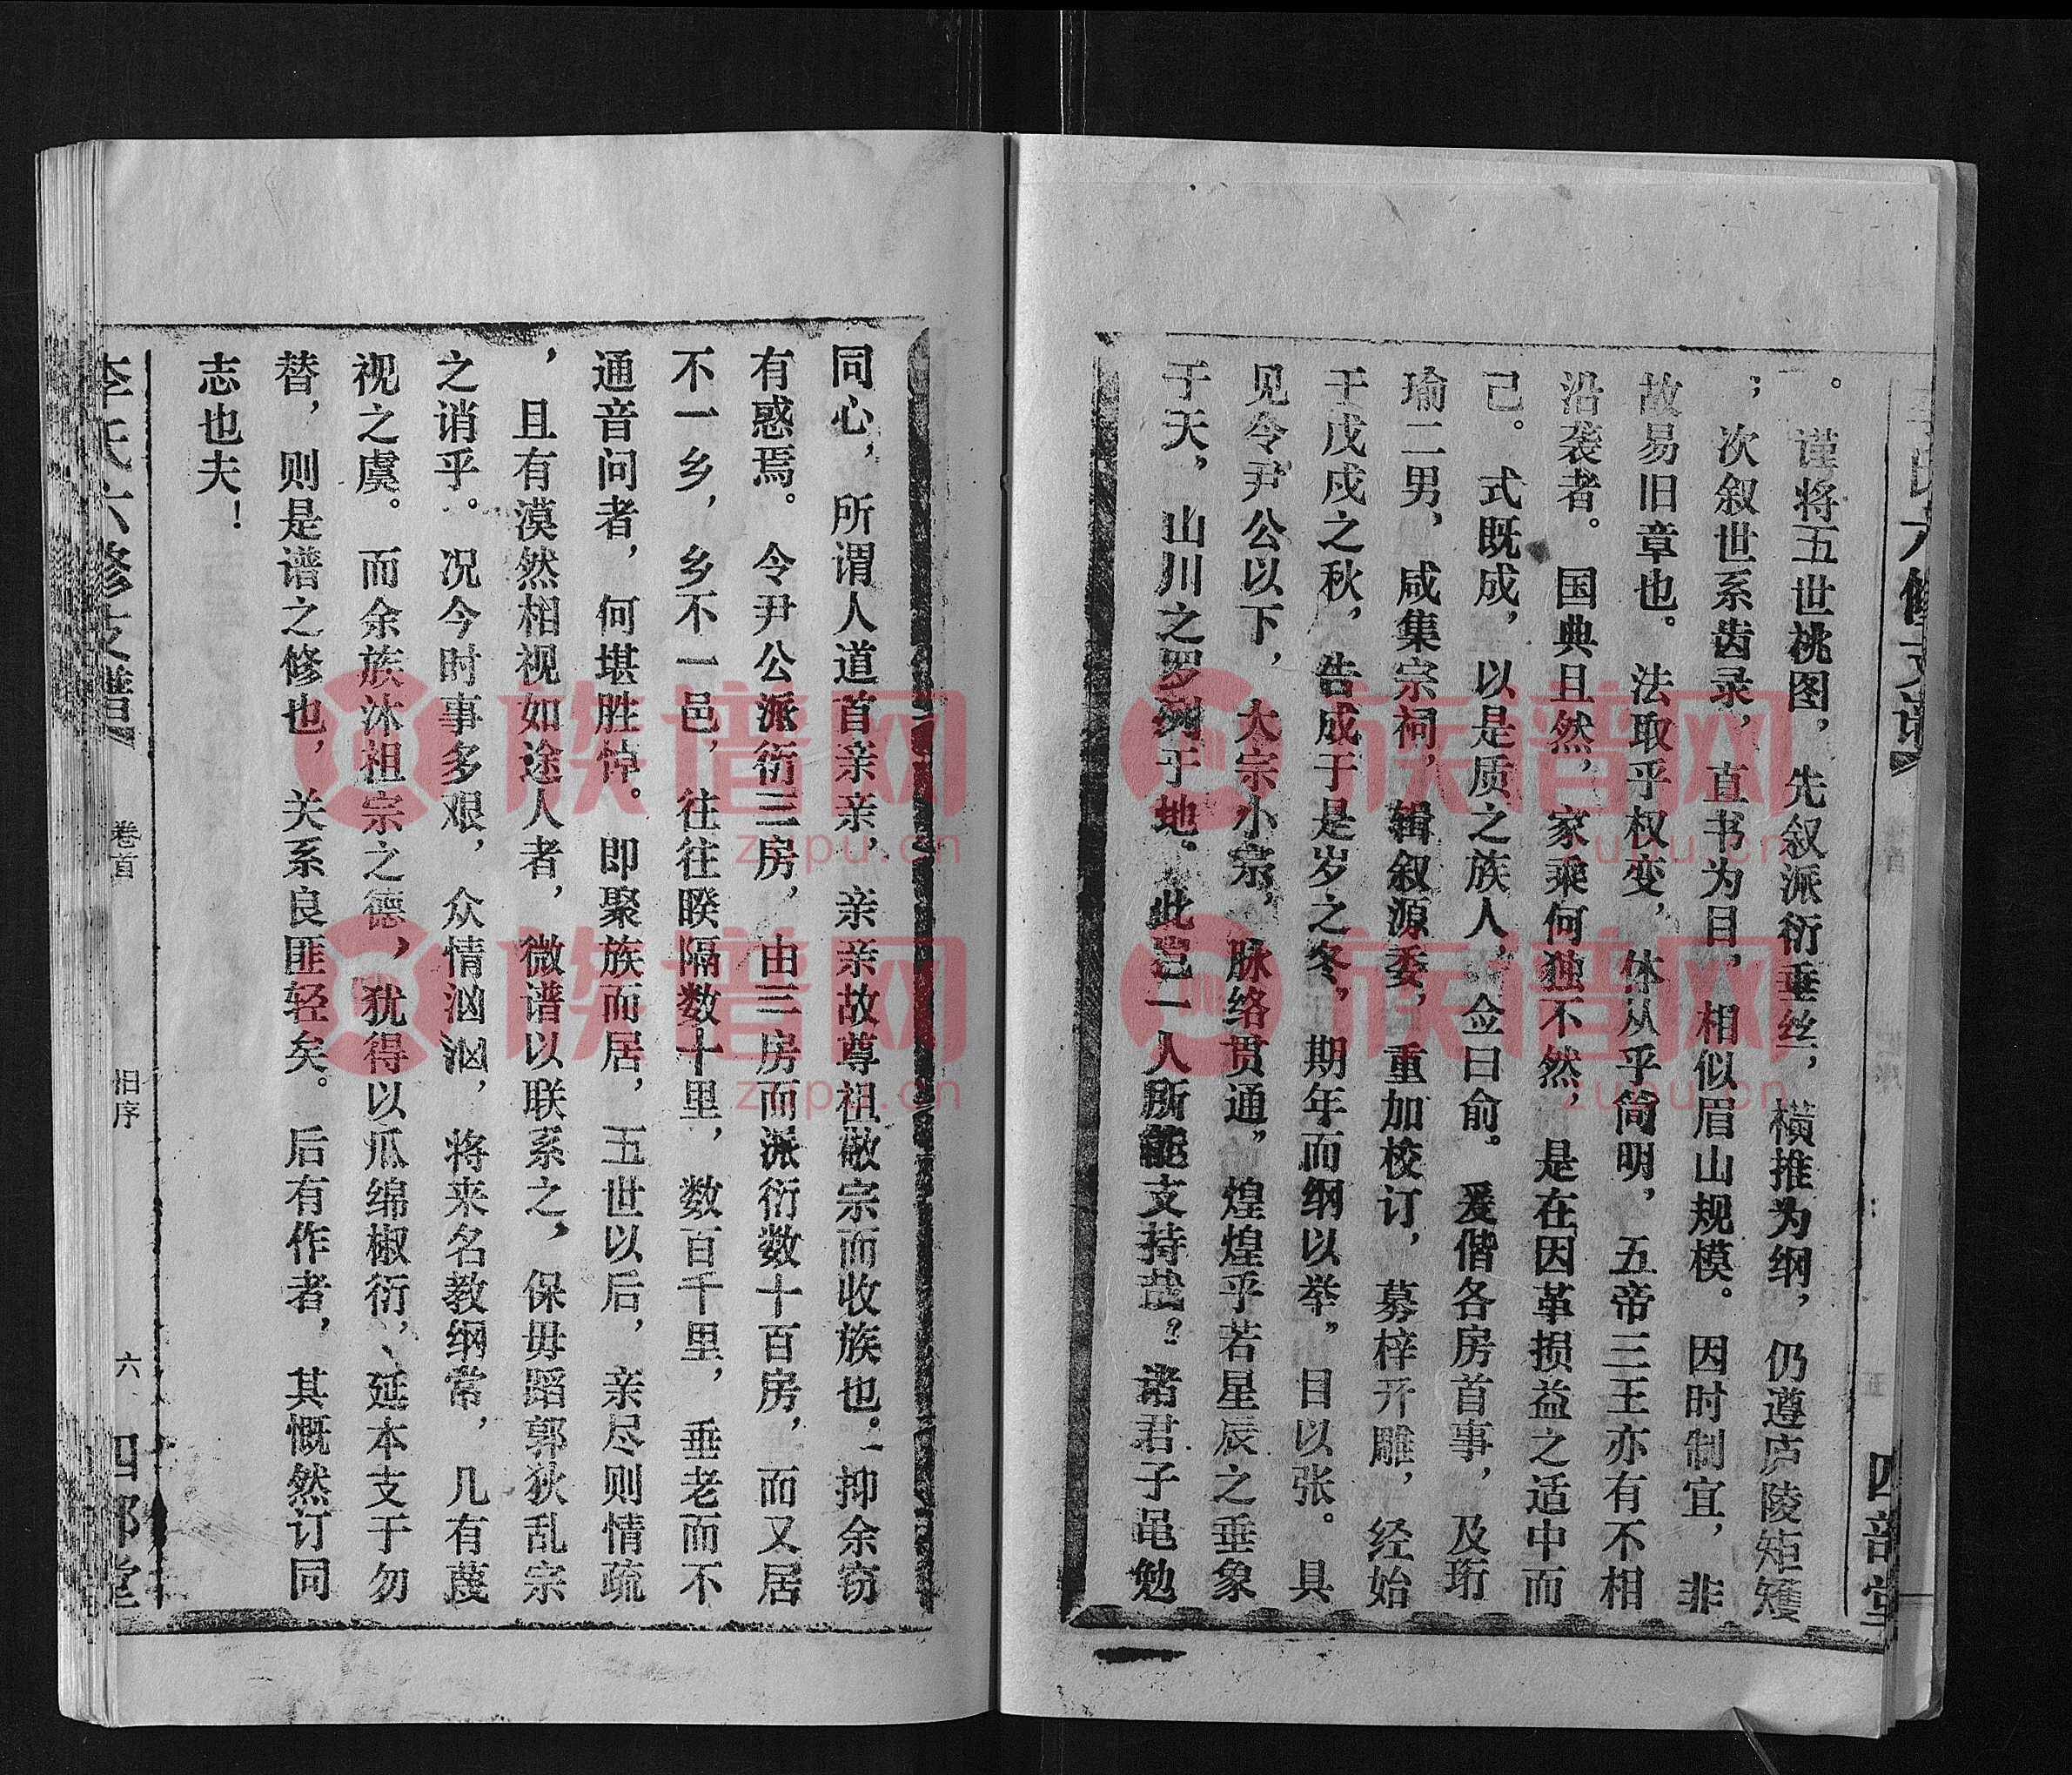 李氏六修支谱
四部堂
。谨将五世桃图，先叙派衍垂丝，横推为纲，仍遵庐陵矩矱
；次叙世系齿录，直书为目，相似眉山规模。因时制宜，非
故易旧章也。法取乎权变，体从乎简明，五帝三王亦有不相
沿袭者。国典且然，家乘何独不然，是在因革损益之适中而
己。式既成，以是质之族人，佥曰俞。爰偕各房首事，及珩
瑜二男，咸集宗祠，辑叙源委，重加校订，募梓开雕，经始
于戊戌之秋，告成于是岁之冬，期年而纲以举，目以张。具
见令尹公以下，大宗小宗，脉络贯通，煌煌乎若星辰之垂象
于天，山川之罗列于地。此岂一人所能支持哉？诸君子黾勉
同心，所谓人道首亲亲，亲亲故尊祖敬宗而收族也。抑余窃
有惑焉。令尹公派衍三房，由三房而派衍数十百房，而又居
不一乡，乡不一邑，往往暌隔数十里，数百千里，垂老而不
通音问者，何堪胜悼。即聚族而居，五世以后，亲尽则情疏
，且有漠然相视如途人者，微谱以联系之，保毋蹈郭狄乱宗
之诮乎。况今时事多艰，众情汹汹，将来名教纲常，几有蔑
视之虞。而余族沐祖宗之德，犹得以瓜绵椒衍，延本支于勿
替，则是谱之修也，关系良匪轻矣。后有作者，其慨然订同
志也夫！
李氏六修支谱
卷首
旧序
六
四部堂
族谱网
zupu.cn
族谱网
zupu.cn
族谱网
zupu.cn
族谱网
zupu.cn